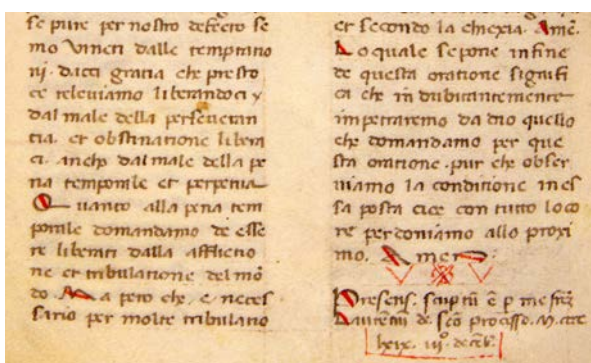 se pure per nostro defecto se
mo vincti dalle temptatio
nj. dacci gratia che presto
ce releviamo liberandoci
dal male della perseveran
tia. et obstinatione libera
ci. anche dal male della pe
na temporale et perpetua
Quanto alla pena tem
porale domandamo de esse
re liberati dalla afflictio
ne et tribulatione del mō
do. Ma pero che. e. neces
sario per molte tribulatio
et secondo la chiexia. Amē.
Lo quale se pone in fine
de questa oratione signifi
ca che indubitantemente
impetraremo da dio quello
che domandamo per que
sta oratione. pur che obser
viamo la conditione in es
sa posta cioe con tutto lo co
re perdoniamo allo proxi
mo. Amen.
Presens. scriptū ē p me
de. scō processo. M. cccc